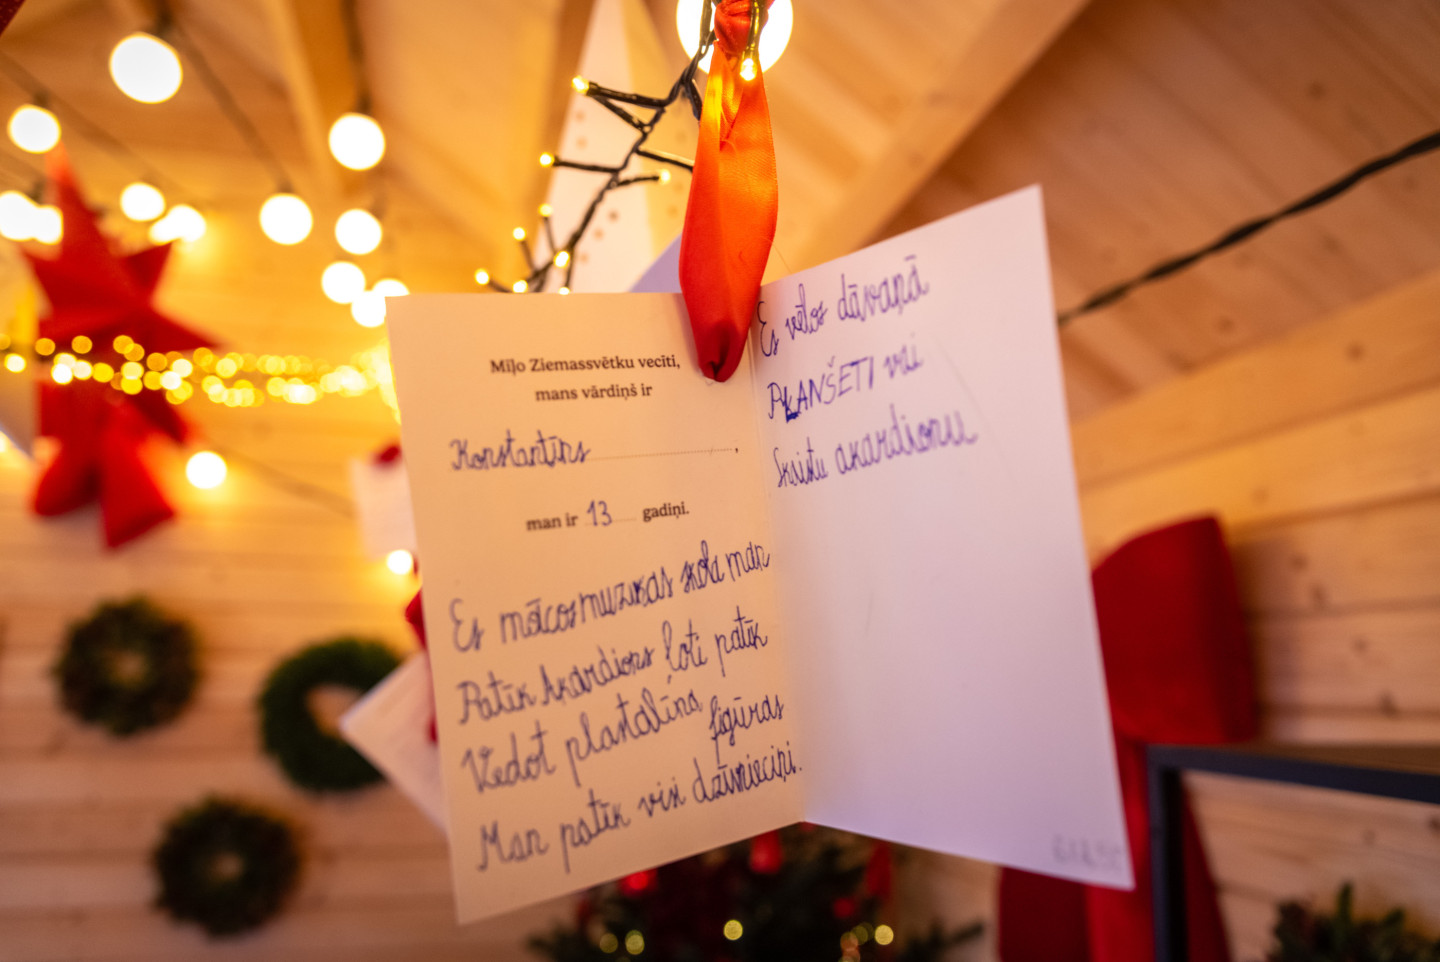 Miļo Ziemassvētku vecīti,
mans vārdiņš ir
Konstantīns,
man ir 13 gadiņi.
Es mācos muzikas skolā man
Patīk Akardions ļoti patīk
Viedot plastalīna figūras
Man patīk visi dzīvnieciņi.
Es vēlos dāvaņā
PLANŠETI vai
Skaistu akardionu